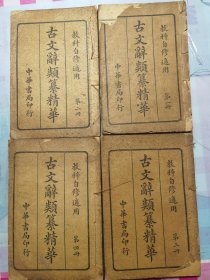 教科自修適用
古文辭類纂精華
第一冊
中華書局印行
教科自修適用
古文辭類纂精華
第二冊
中華書局印行
教科自修適用
古文辭類纂精華
第三冊
中華書局印行
教科自修適用
古文辭類纂精華
第四冊
中華書局印行